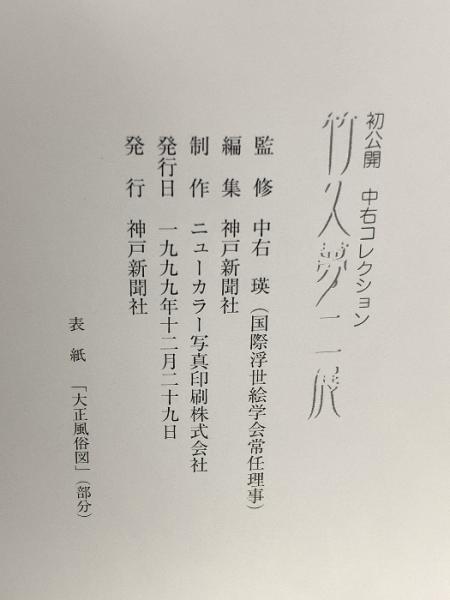 初公開 中右コレクション
竹久夢二展
監修 中右 瑛(国際浮世絵学会常任理事)
編集 神戸新聞社
制作 ニューカラー写真印刷株式会社
発行日 一九九九年十二月二十九日
発行 神戸新聞社
表紙 「大正風俗図」(部分)